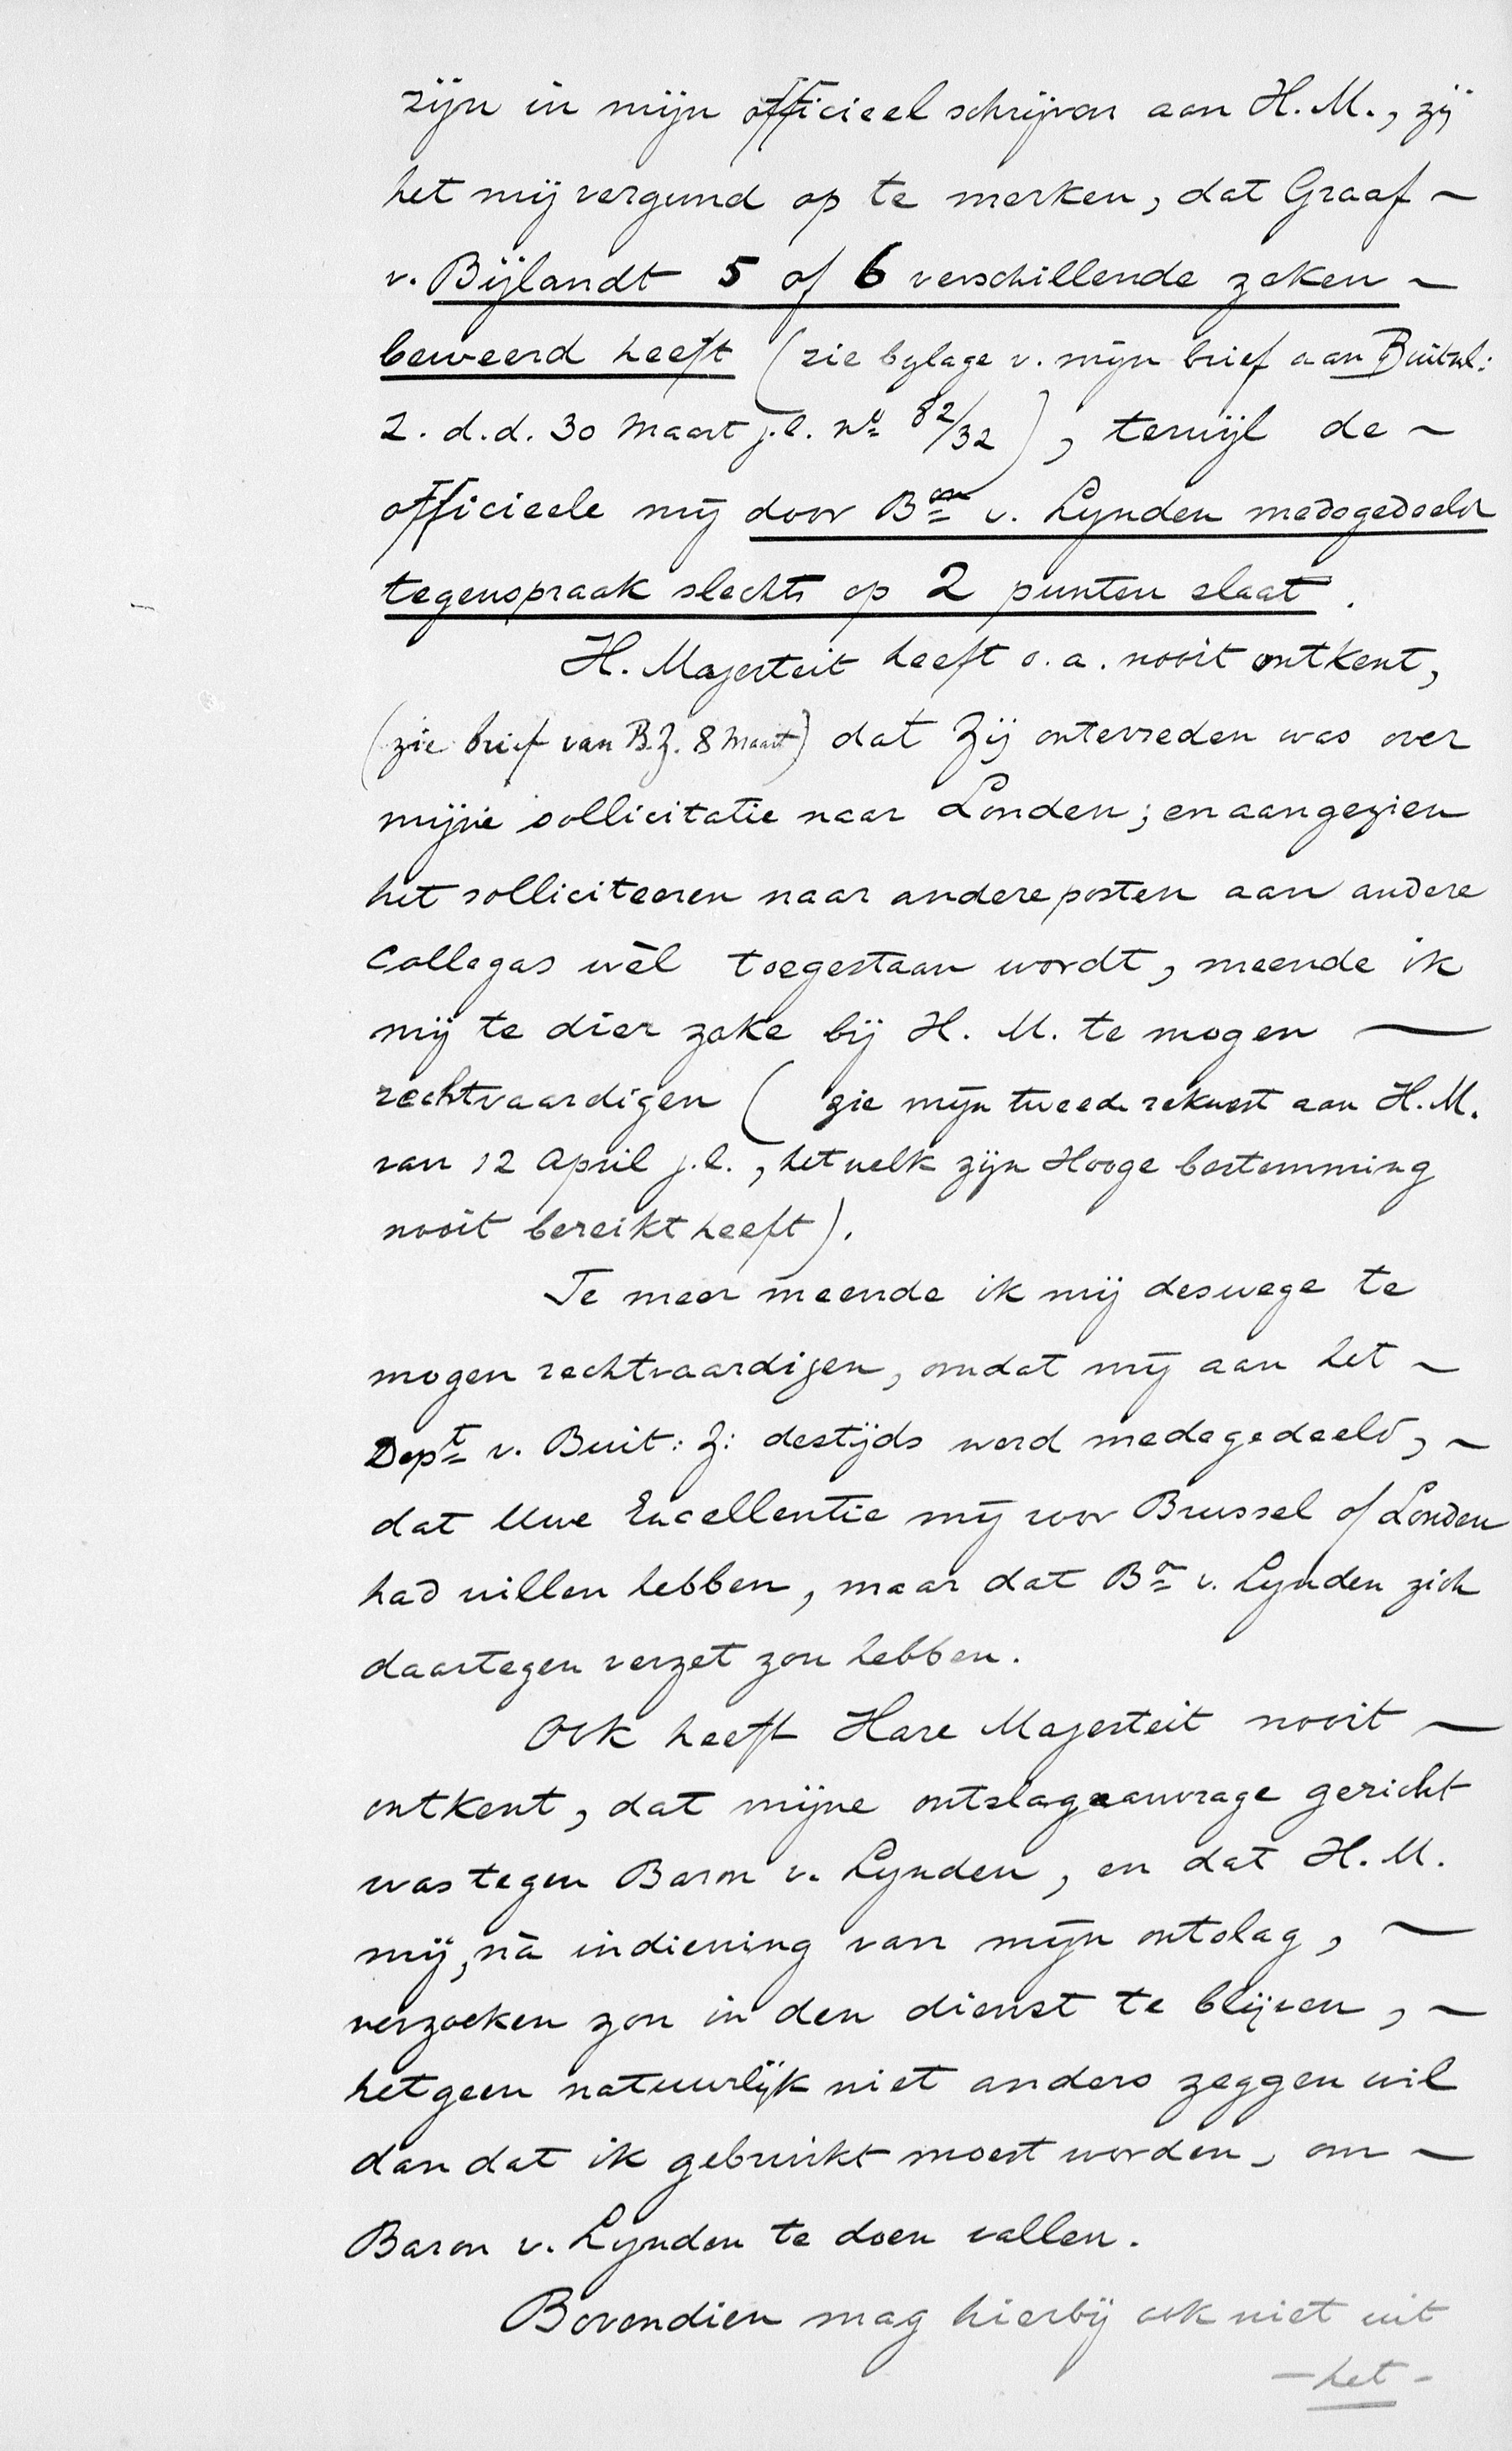 zijn in mijn officieel schrijven aan H.M., zij
het mij vergund op te merken, dat Graaf ~
v. Bijlandt 5 of 6 verschillende zaken ~
beweerd heeft (zie bylage v. mijn brief aan Buitenl:
Z. d.d. 30 Maart j.l. No 82/32), terwijl de ~
officieele mij door Bon v. Lynden medegedeeld
tegenspraak slechts op 2 punten slaat.
H. Majesteit heeft o.a. nooit ontkent,
(zie brief van B.Z. 8 Maart) dat Zij ontevreden was over
mijne sollicitatie naar Londen; en aangezien
het solliciteeren naar andere posten aan andere
Collegas wèl toegestaan wordt, meende ik
mij te dier zake bij H. M. te mogen —
rechtvaardigen (zie mijn tweede rekwest aan H.M.
van 12 April j.l., hetwelk zijn Hooge bestemming
nooit bereikt heeft).
Te meer meende ik mij deswege te
mogen rechtvaardigen, omdat mij aan het ~
Dept v. Buit: Z: destijds werd medegedeeld, ~
dat Uwe Excellentie mij voor Brussel of Londen
had willen hebben, maar dat Bon v. Lynden zich
daartegen verzet zou hebben.
Ook heeft Hare Majesteit nooit —
ontkent, dat mijne ontslagaanvrage gericht
was tegen Baron v. Lynden, en dat H.M.
mij, nà indiening van mijn ontslag, ~
verzoeken zou in den dienst te blijven, ~
hetgeen natuurlijk niet anders zeggen wil
dan dat ik gebruikt moest worden, om ~
Baron v. Lynden te doen vallen.
Bovendien mag hierbij ook niet uit
- het -